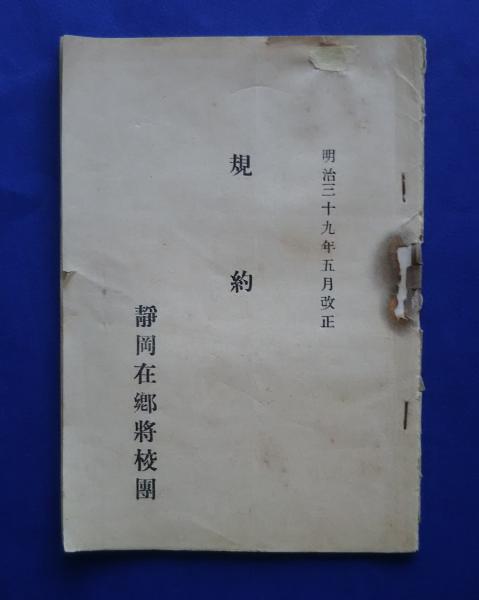 明治三十九年五月改正
規約
靜岡在鄕將校團